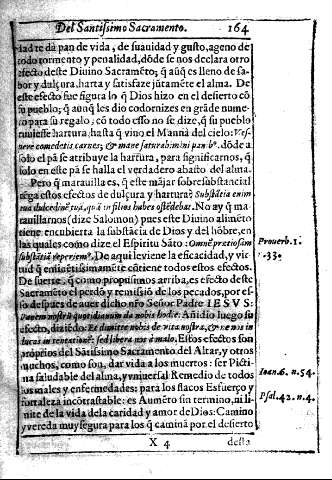 Del Santissimo Sacramento. 164
da pan de vida, de suauidad y gusto, ageno de
todo tormento y penalidad, dõde se nos declara otro
efecto deste Diuino Sacramẽto; q̃ aũq̃ es lleno de sa-
bor y dulçura, harta y satisfaze jũtamẽte el alma. De
este efecto fue figura lo q̃ Dios hizo en el desierto cõ
su pueblo; q̃ aunq̃ les dio codornizes en grãde nume-
ro para su regalo; cõ todo esso no se dize, q̃ su pueblo
tuuiesse hartura, hasta q̃ vino el Mannà del cielo: Ves-
pere comedetis carnes; & mane saturabimini panib⁹. dõde a
solo el pã se atribuye la hartura, para significarnos, q̃
solo en este pã se halla el verdadero abasto del alma.
Pero q̃ marauilla es, q̃ este mãjar sobresubstancial
tẽga estos efectos de dulçura y hartura? Substãtia enim
tua dulcedinẽ tuã, quã in filios habes ostẽdebat. No ay q̃ ma-
rauillarnos (dize Salomon) pues este Diuino alimẽto
tiene encubierta la substãcia de Dios y del hõbre, en
las quales como dize el Espiritu Sãto: Omnẽ pretiosam
substãtiã reperiem⁹. De aqui leuiene la eficacidad, y vir-
tud q̃ eminẽtissimamẽte cõtiene todos estos efectos.
De suerte, q̃ como propusimos arriba, es efecto deste
Sacramẽto el perdõ y remissiõ de los pecados, por es-
so despues de auer dicho nr̃o Señor Padre IESVS:
Panem nostrũ quotidianum da nobis hodie: Añidio luego su
efecto, diziẽdo: Et dimitte nobis debita nostra, & ne nos in-
ducas in tentationẽ: sed libera nos à malo. Estos efectos son
proprios del Sãtissimo Sacramento del Altar, y otros
muchos, como son, dar vida à los muertos: ser Picti-
ma saludable del alma, y vniuersal Remedio de todos
los males y enfermedades: para los flacos Esfuerço y
fortaleza incõtrastable: es Aumẽto sin termino, ni li-
mite de la vida dela caridad y amor de Dios: Camino
y vereda muy segura para los q̃ caminã por el desierto
Prouerb. 1.
Ioan. 6. n. 54.
Psal. 42. n. 4.
X 4 desta